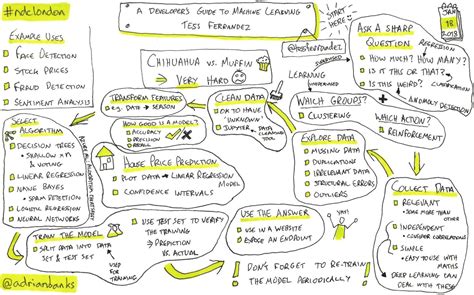 #ndclondon
A DEVELOPER'S GUIDE TO MACHINE LEARNING
TESS FERRANDEZ
START HERE
JAN
18
2018
EXAMPLE USES
FACE DETECTION
STOCK PRICES
FRAUD DETECTION
SENTIMENT ANALYSIS
CHIHUAHUA VS. MUFFIN
VERY HARD
@tessferrandez
ASK A SHARP QUESTION
REGRESSION
HOW MUCH? HOW MANY?
IS IT THIS OR THAT?
IS THIS WEIRD?
CLASSIFICATION
ANOMALY DETECTION
SUPERVISED
LEARNING
UNSUPERVISED
WHICH GROUPS?
CLUSTERING
WHICH ACTION?
REINFORCEMENT
COLLECT DATA
RELEVANT
SOME MORE THAN OTHER
INDEPENDENT
SIMPLE
EASY TO USE WITH MATHS
DEEP LEARNING CAN DEAL WITH THESE
EXPLORE DATA
MISSING DATA
DUPLICATIONS
IRRELEVANT DATA
STRUCTURAL ERRORS
OUTLIERS
CLEAN DATA
OK TO HAVE "UNKNOWN"
JUPYTER
DATA CLEANING TOOL
TRANSFORM FEATURES
E.G. DATE → SEASON
HOW GOOD IS A MODEL?
ACCURACY
PRECISION
RECALL
SELECT ALGORITHM
DECISION TREES
SHALLOW × N & VOTING
LINEAR REGRESSION
NAIVE BAYES
SPAM DETECTION
LOGISTIC REGRESSION
NEURAL NETWORKS
HOUSE PRICE PREDICTION
PLOT DATA → LINEAR REGRESSION MODEL
CONFIDENCE INTERVALS
TRAIN THE MODEL
SPLIT DATA INTO DATA SET & TEST SET
USED FOR TRAINING
USE TEST SET TO VERIFY THE TRAINING
PREDICTION VS. ACTUAL
USE THE ANSWER
USE IN A WEBSITE
EXPOSE AN ENDPOINT
YAY!
DON'T FORGET TO RE-TRAIN THE MODEL PERIODICALLY
@adrianbanks